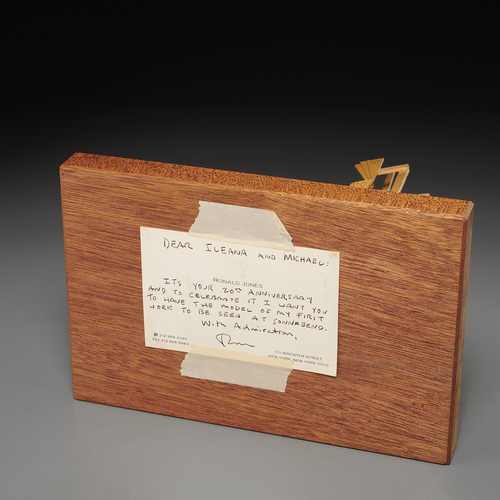 DEAR ILEANA AND MICHAEL:
RONALD JONES
IT'S YOUR 20TH ANNIVERSARY
AND TO CELEBRATE IT I WANT YOU
TO HAVE THE MODEL OF MY FIRST
WORK TO BE SEEN AT SONNABEND.
With Admiration,
NEW YORK, NEW YORK